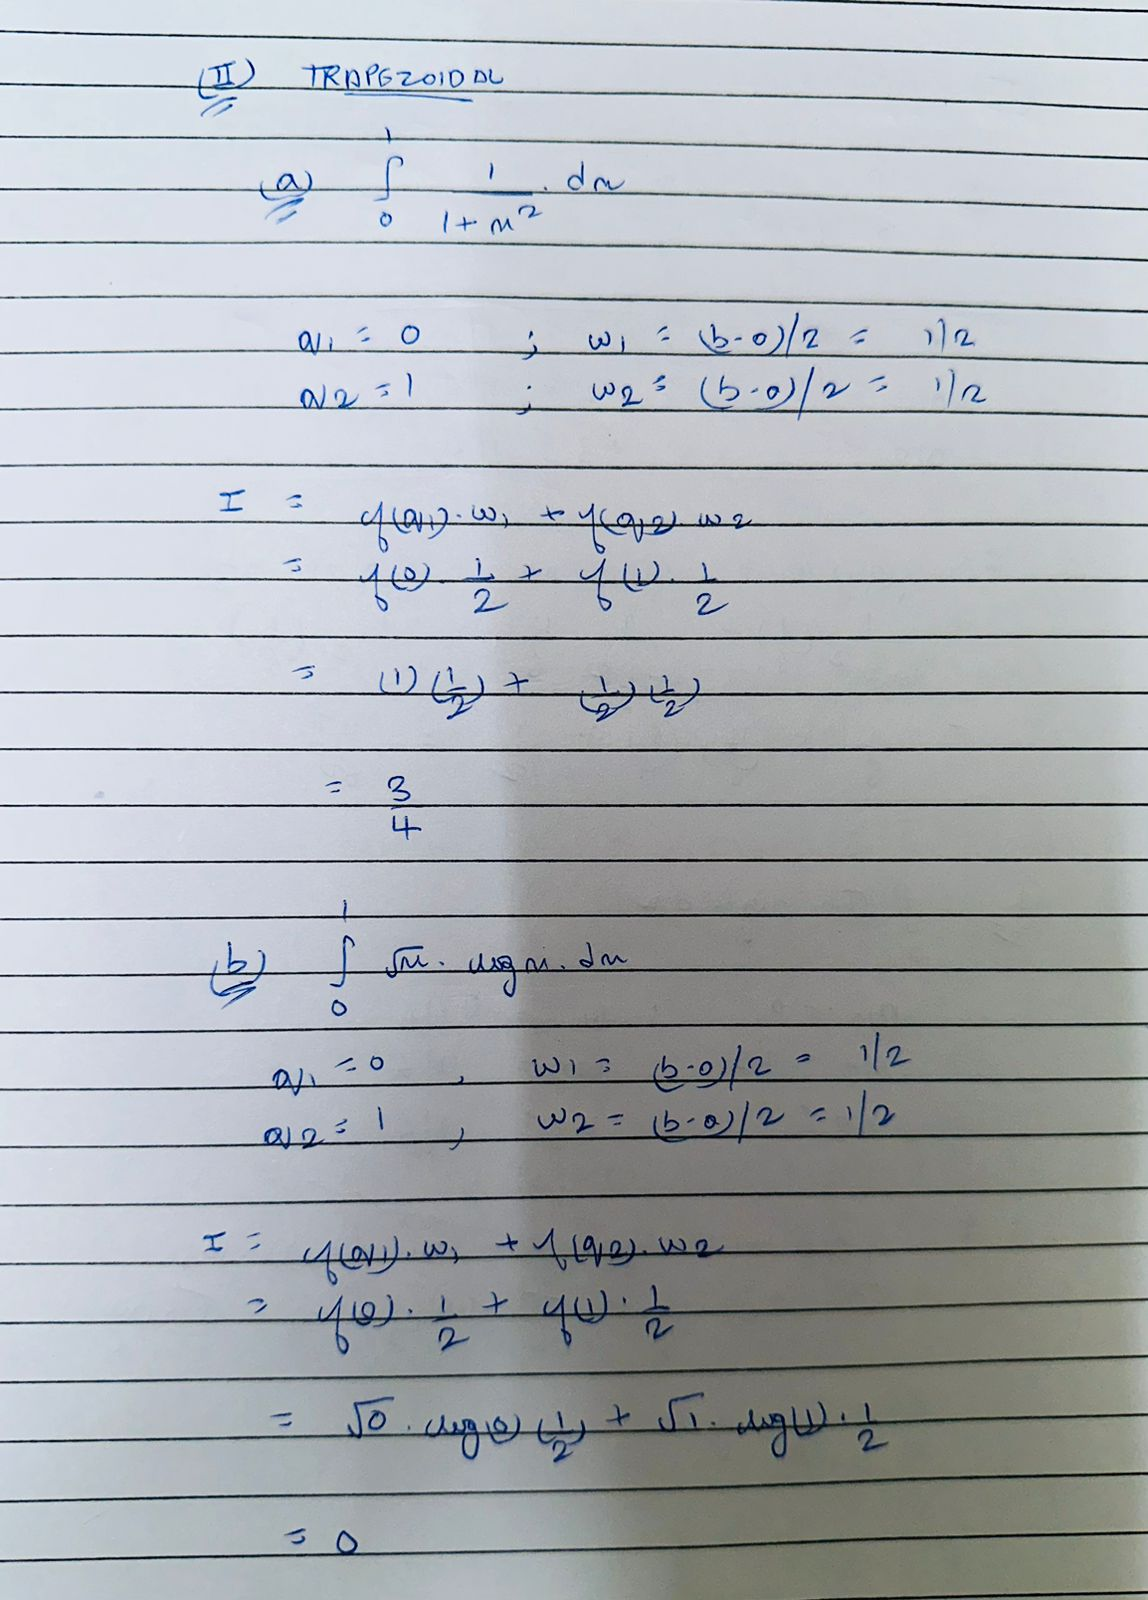 (II) TRAPEZOIDAL
(a) ∫₀¹ 1/(1+x²) . dx
x₁ = 0 ; w₁ = (b-a)/2 = 1/2
x₂ = 1 ; w₂ = (b-a)/2 = 1/2
I = f(x₁).w₁ + f(x₂).w₂
= f(0) . 1/2 + f(1) . 1/2
= (1)(1/2) + (1/2)(1/2)
= 3/4
(b) ∫₀¹ √x . log x . dx
x₁ = 0 , w₁ = (b-a)/2 = 1/2
x₂ = 1 , w₂ = (b-a)/2 = 1/2
I = f(x₁).w₁ + f(x₂).w₂
= f(0) . 1/2 + f(1) . 1/2
= √0 . log(0) (1/2) + √1 . log(1) . 1/2
= 0